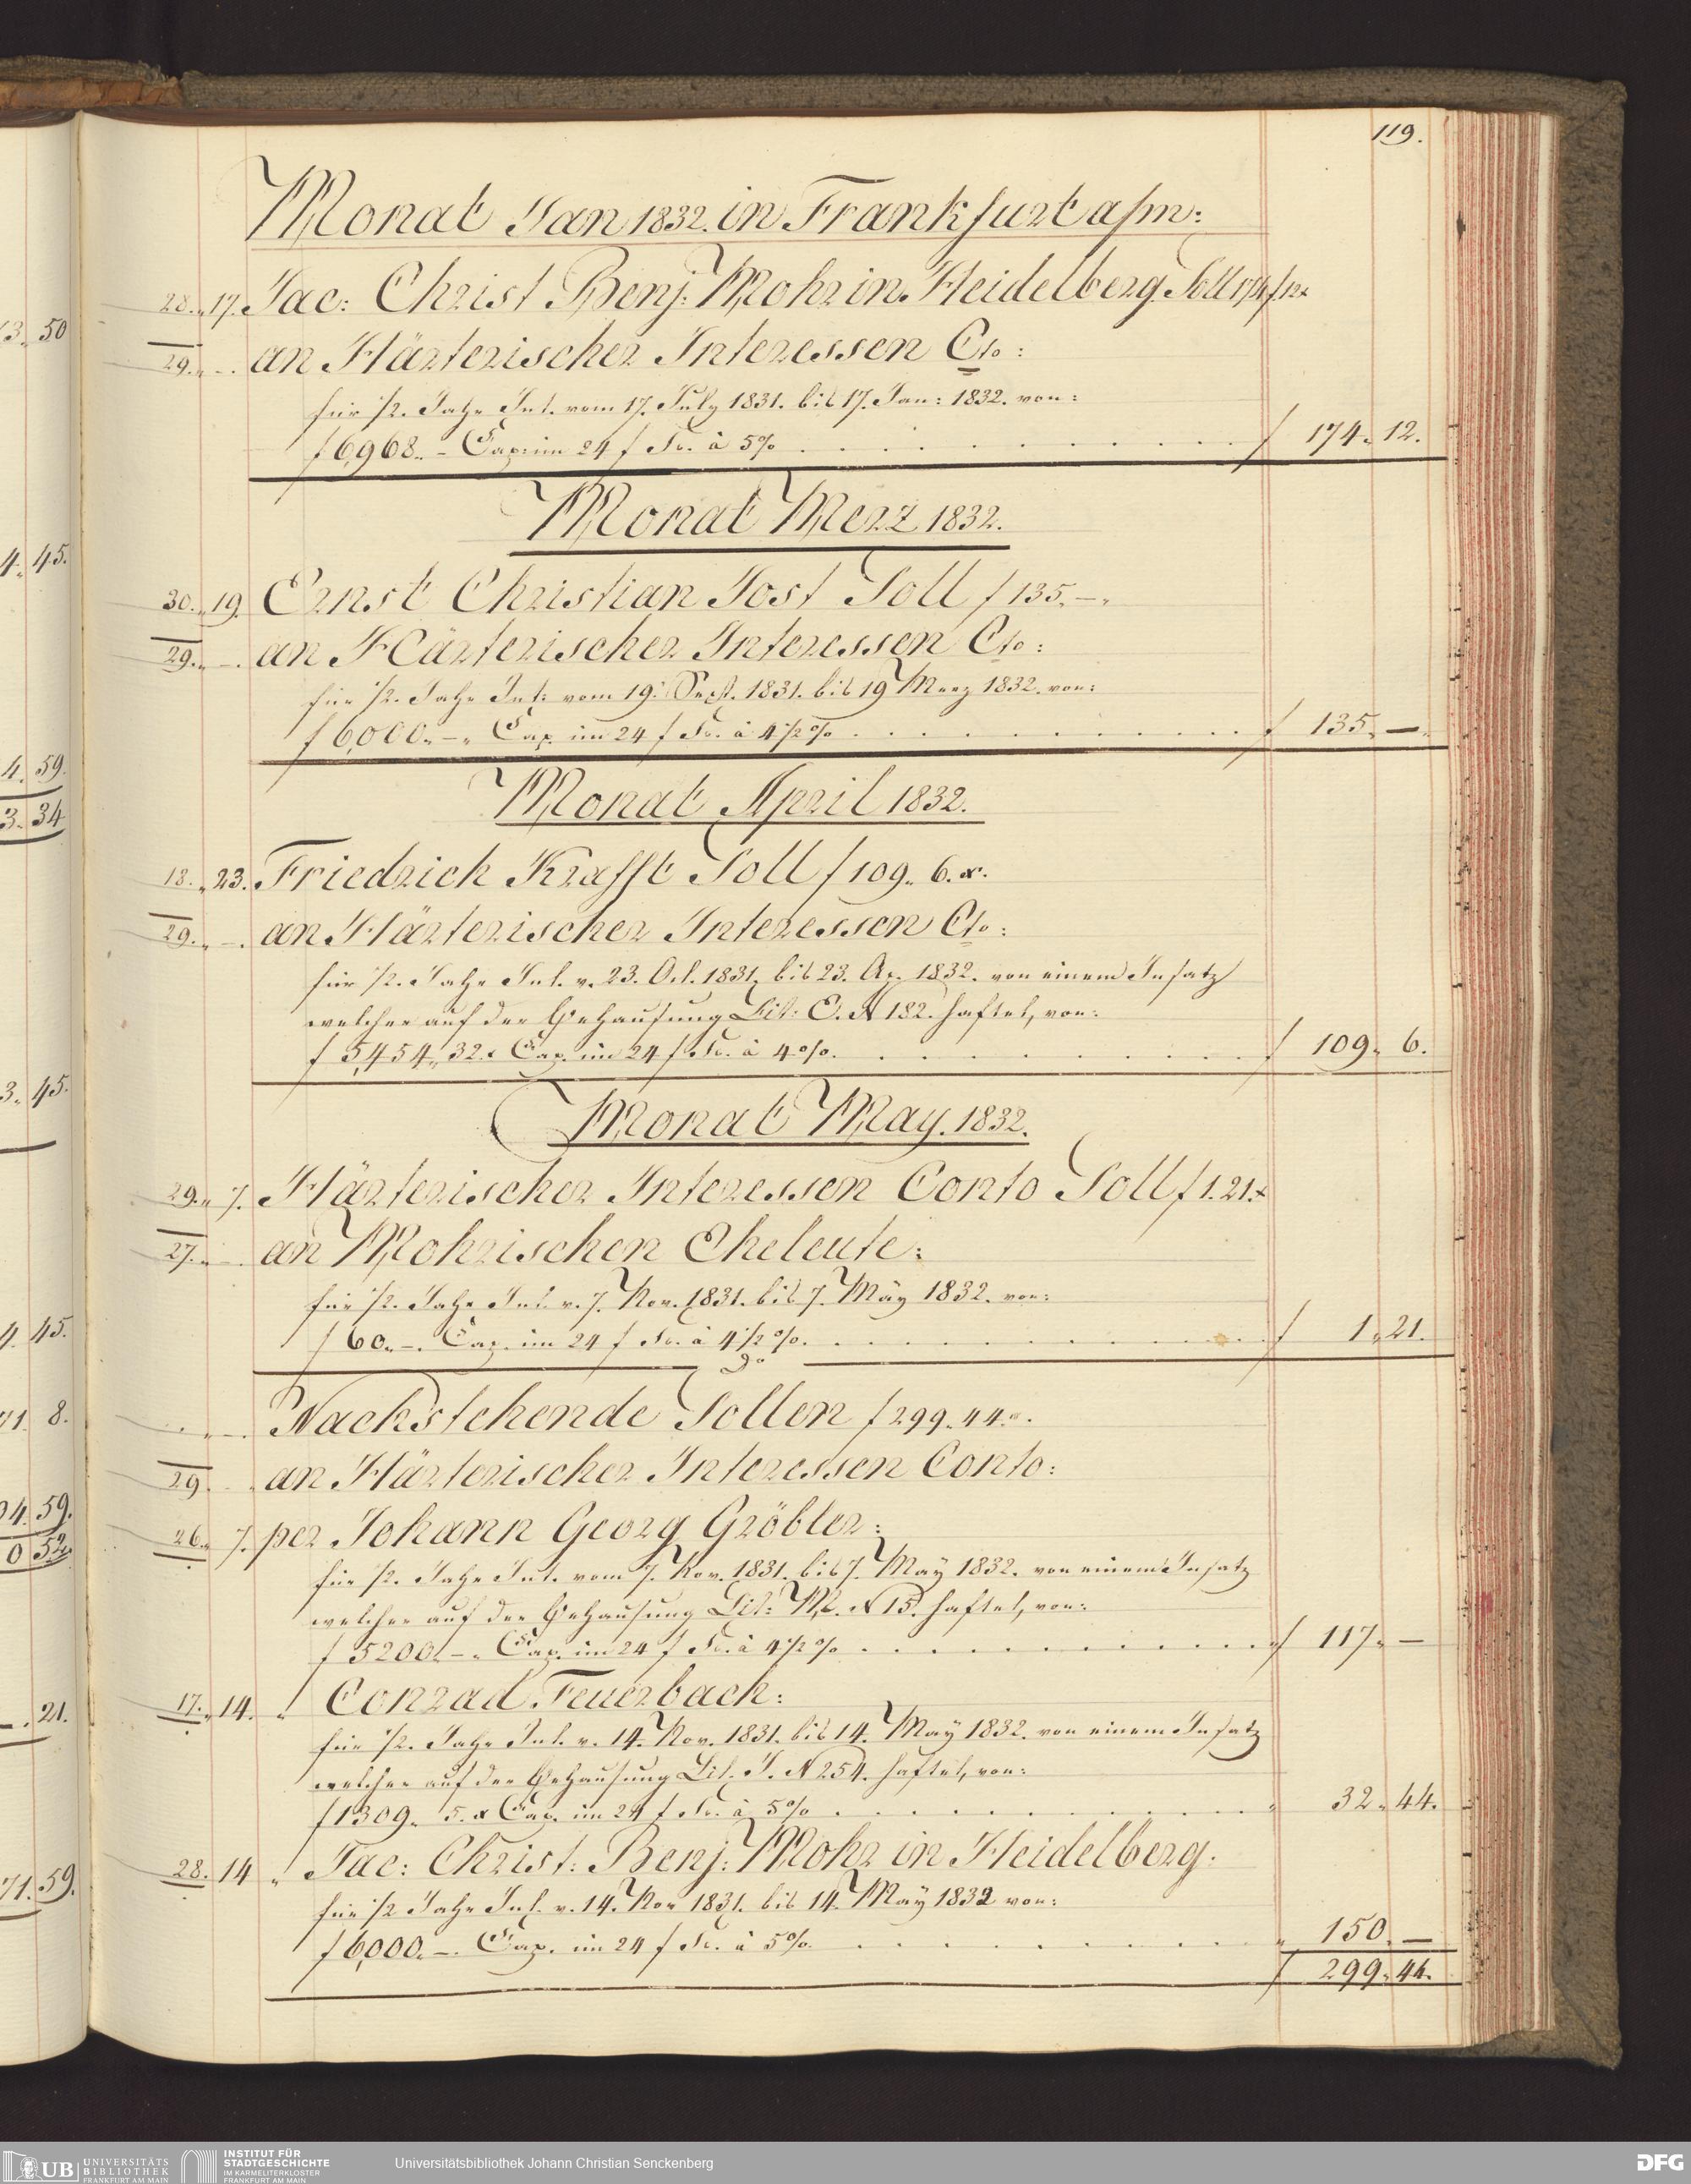 119.
Monat Jan 1832. in Frankfurt a/m:
28. 17. Jac: Christ Benj: Mohr in Heidelberg Soll 174 f 12 x
29. -. an Härterischer Interessen Cto:
für 1/2. Jahr Int. vom 17. July 1831. bis 17. Jan: 1832. von:
f 6,968. - Cap: im 24 f Fs. à 5% f 174. 12.
Monat Merz 1832.
30. 19. Ernst Christian Jost Soll f 135. -.
29. -. an Härterischer Interessen Cto:
für 1/2. Jahr Int: vom 19. Sept. 1831. bis 19 Merz 1832. von:
f 6,000. -. Cap. im 24 f Fs. à 4 1/2 % f 135. -.
Monat April 1832.
18. 23. Friedrich Krafft Soll f 109. 6. x.
29. -. an Härterischer Interessen Cto:
für 1/2. Jahr Int. v. 23. Oct. 1831. bis 23. Ap. 1832. von einem Insatz
welcher auf der Behausung Lit: E. N 182. haftet, von:
f 5,454. 32. x Cap. im 24 f Fs. à 4 %. f 109. 6.
Monat May. 1832.
29. 7. Härterischer Interessen Conto Soll f 1. 21. x
27. -. an Mohrischen Eheleute:
für 1/2. Jahr Int. v. 7. Nov. 1831. bis 7. May 1832. von:
f 60. -. Cap. im 24 f Fs. à 4 1/2 %. f 1. 21.
Do
Nachstehende Sollen f 299. 44. x.
29. an Härterischer Interessen Conto:
26. 7. per Johann Georg Gröbler:
für 1/2. Jahr Int. vom 7. Nov. 1831. bis 7. May 1832. von einem Insatz
welcher auf der Behausung Lit: M. N 15. haftet, von:
f 5200. -. Cap. im 24 f Fs. à 4 1/2 % f 117. -
17. 14. " Conrad Feuerbach:
für 1/2. Jahr Int. v. 14. Nov. 1831. bis 14. May 1832. von einem Insatz
welcher auf der Behausung Lit. J. N 254. haftet, von:
f 1309. 5. x Cap. im 24 f Fs. à 5 % " 32. 44.
28. 14 " Jac: Christ: Benj: Mohr in Heidelberg.
für 1/2 Jahr Int. v. 14. Nov 1831. bis 14. May 1832 von:
f 6,000. -. Cap. im 24 f Fs. à 5 %. " 150. -
f 299. 44.
3. 50
4. 45.
4. 59.
3. 34
3. 45.
4. 45.
71. 8.
4. 59.
0 52.
-. 21.
71. 59.
UB UNIVERSITÄTS
BIBLIOTHEK
FRANKFURT AM MAIN
INSTITUT FÜR
STADTGESCHICHTE
IM KARMELITERKLOSTER
FRANKFURT AM MAIN
Universitätsbibliothek Johann Christian Senckenberg
DFG